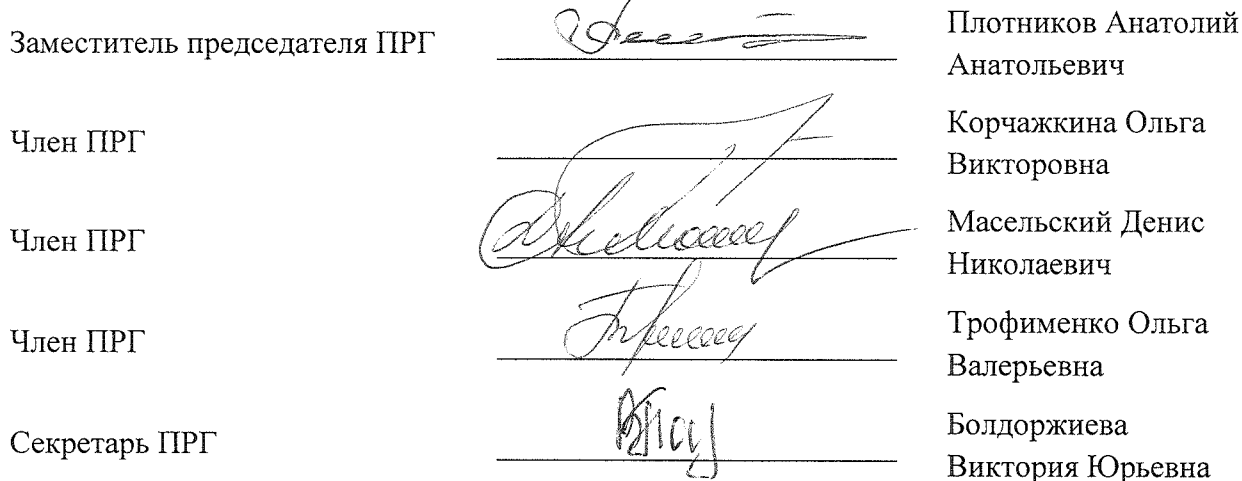 Заместитель председателя ПРГ
Плотников Анатолий
Анатольевич
Член ПРГ
Корчажкина Ольга
Викторовна
Член ПРГ
Масельский Денис
Николаевич
Член ПРГ
Трофименко Ольга
Валерьевна
Секретарь ПРГ
Болдоржиева
Виктория Юрьевна